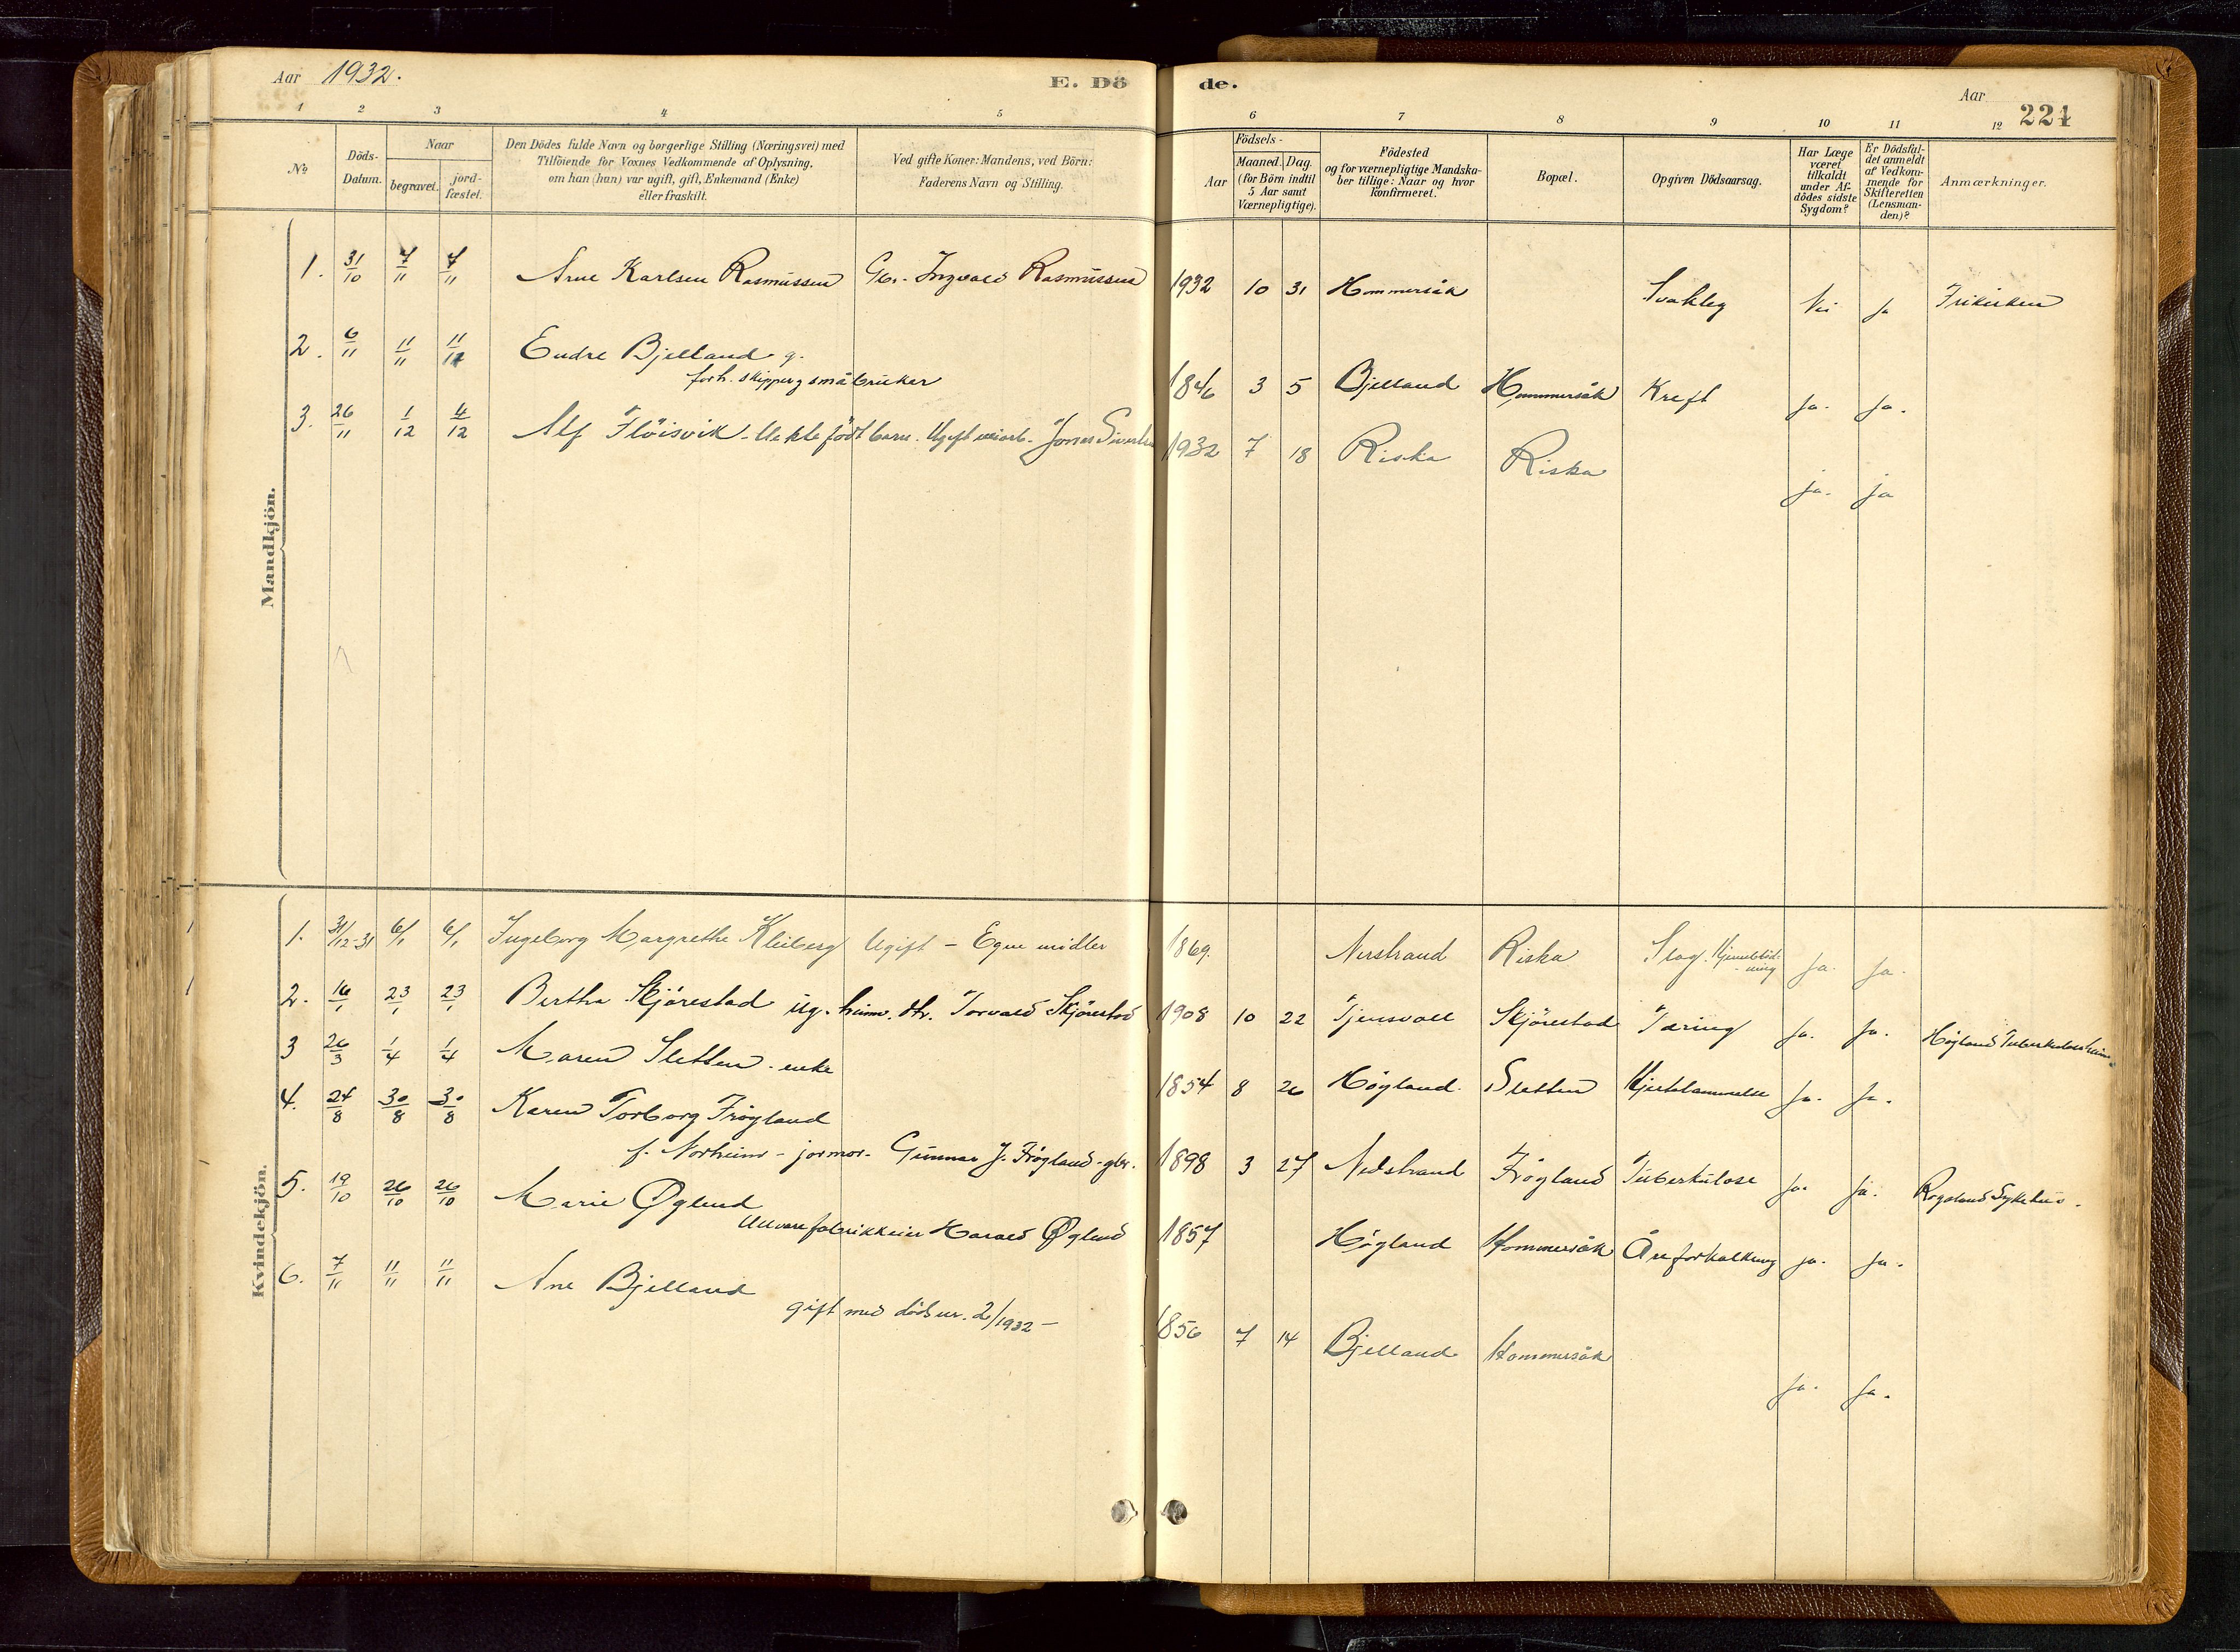 Aar 1932.
E. Dö
de.
Aar
221
1 2 3 4 5 6 7 8 9 10 11 12
№
Döds-Datum.
Naar
begravet.
jord-fæstet.
Den Dödes fulde Navn og borgerlige Stilling (Næringsvei) med
Tilföiende for Voxnes Vedkommende af Oplysning,
om han (hun) var ugift, gift, Enkemand (Enke)
eller fraskilt.
Ved gifte Koner: Mandens, ved Börn:
Faderens Navn og Stilling.
Födsels-
Aar
Maaned. Dag.
(for Börn indtil
5 Aar samt
Værnepligtige).
Födested
og for værnepligtige Mandska-
ber tillige: Naar og hvor
konfirmeret.
Bopæl.
Opgiven Dödsaarsag.
Har Læge
været
tilkaldt
under Af-
dödes sidste
Sygdom?
Er Dödsfal-
det anmeldt
af Vedkom-
mende for
Skifteretten
(Lensman-
den)?
Anmærkninger.
Mandkjön.
1. 31/10 7/11 7/11 Arne Karlsen Rasmussen Gbr. Ingvald Rasmussen 1932 10 31 Hommersåk Svakleg Nei ja Frikirken
2. 6/11 11/11 11/11 Endre Bjelland g.
forh. skipper g småbruker 1846 3 5 Bjelland Hommersåk Kreft ja. ja.
3. 26/11 1/12 4/12 Alf Fløisvik - Uekte født barn. Ugift Jonas 1932 7 18 Riska Riska ja. ja
Kvindekjön.
1. 31/12-31 6/1 6/1 Ingeborg Margrethe Kleiberg Ugift - Egne midler 1869. Nerstrand Riska Slag. ja. ja.
2. 16/1 23/1 23/1 Bertha Skjørestad ug. heimv. dtr. Torvald Skjørestad 1908 10 22 Tjensvoll Skjørestad Tæring ja. ja. Høgland Tuberkuloseheim
3 26/3 1/4 1/4 Maren Sletten - enke 1854 8 26 Høgland. Sletten Hjertelammelse ja. ja.
4. 24/8 30/8 30/8 Karen Torborg Frøyland
f. Norheim - jormor - Gunnar J. Frøyland - gbr. 1898 3 27 Nedstrand Frøyland Tuberkulose ja. ja. Rogaland Sykehus.
5. 19/10 26/10 26/10 Marie Øglend
Ullvarefabrikkeier Harald Øglend 1857 Høgland Hommersåk Åreforkalkning ja. ja.
6. 7/11 11/11 11/11 Ane Bjelland
gift med døds nr. 2/1932 - 1856 7 14 Bjelland Hommersåk ja. ja.